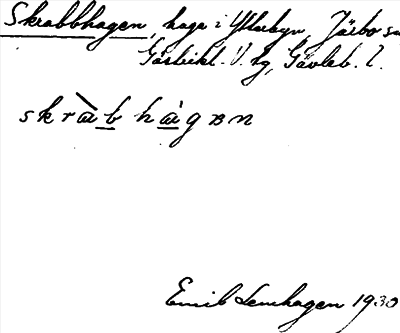 Skrabbhagen, hage i Ytterbyn, Järbo sn
Gästrikl. V. tg, Gävleb. l.
skràb hàgɐn
Emil Lenhagen 1930